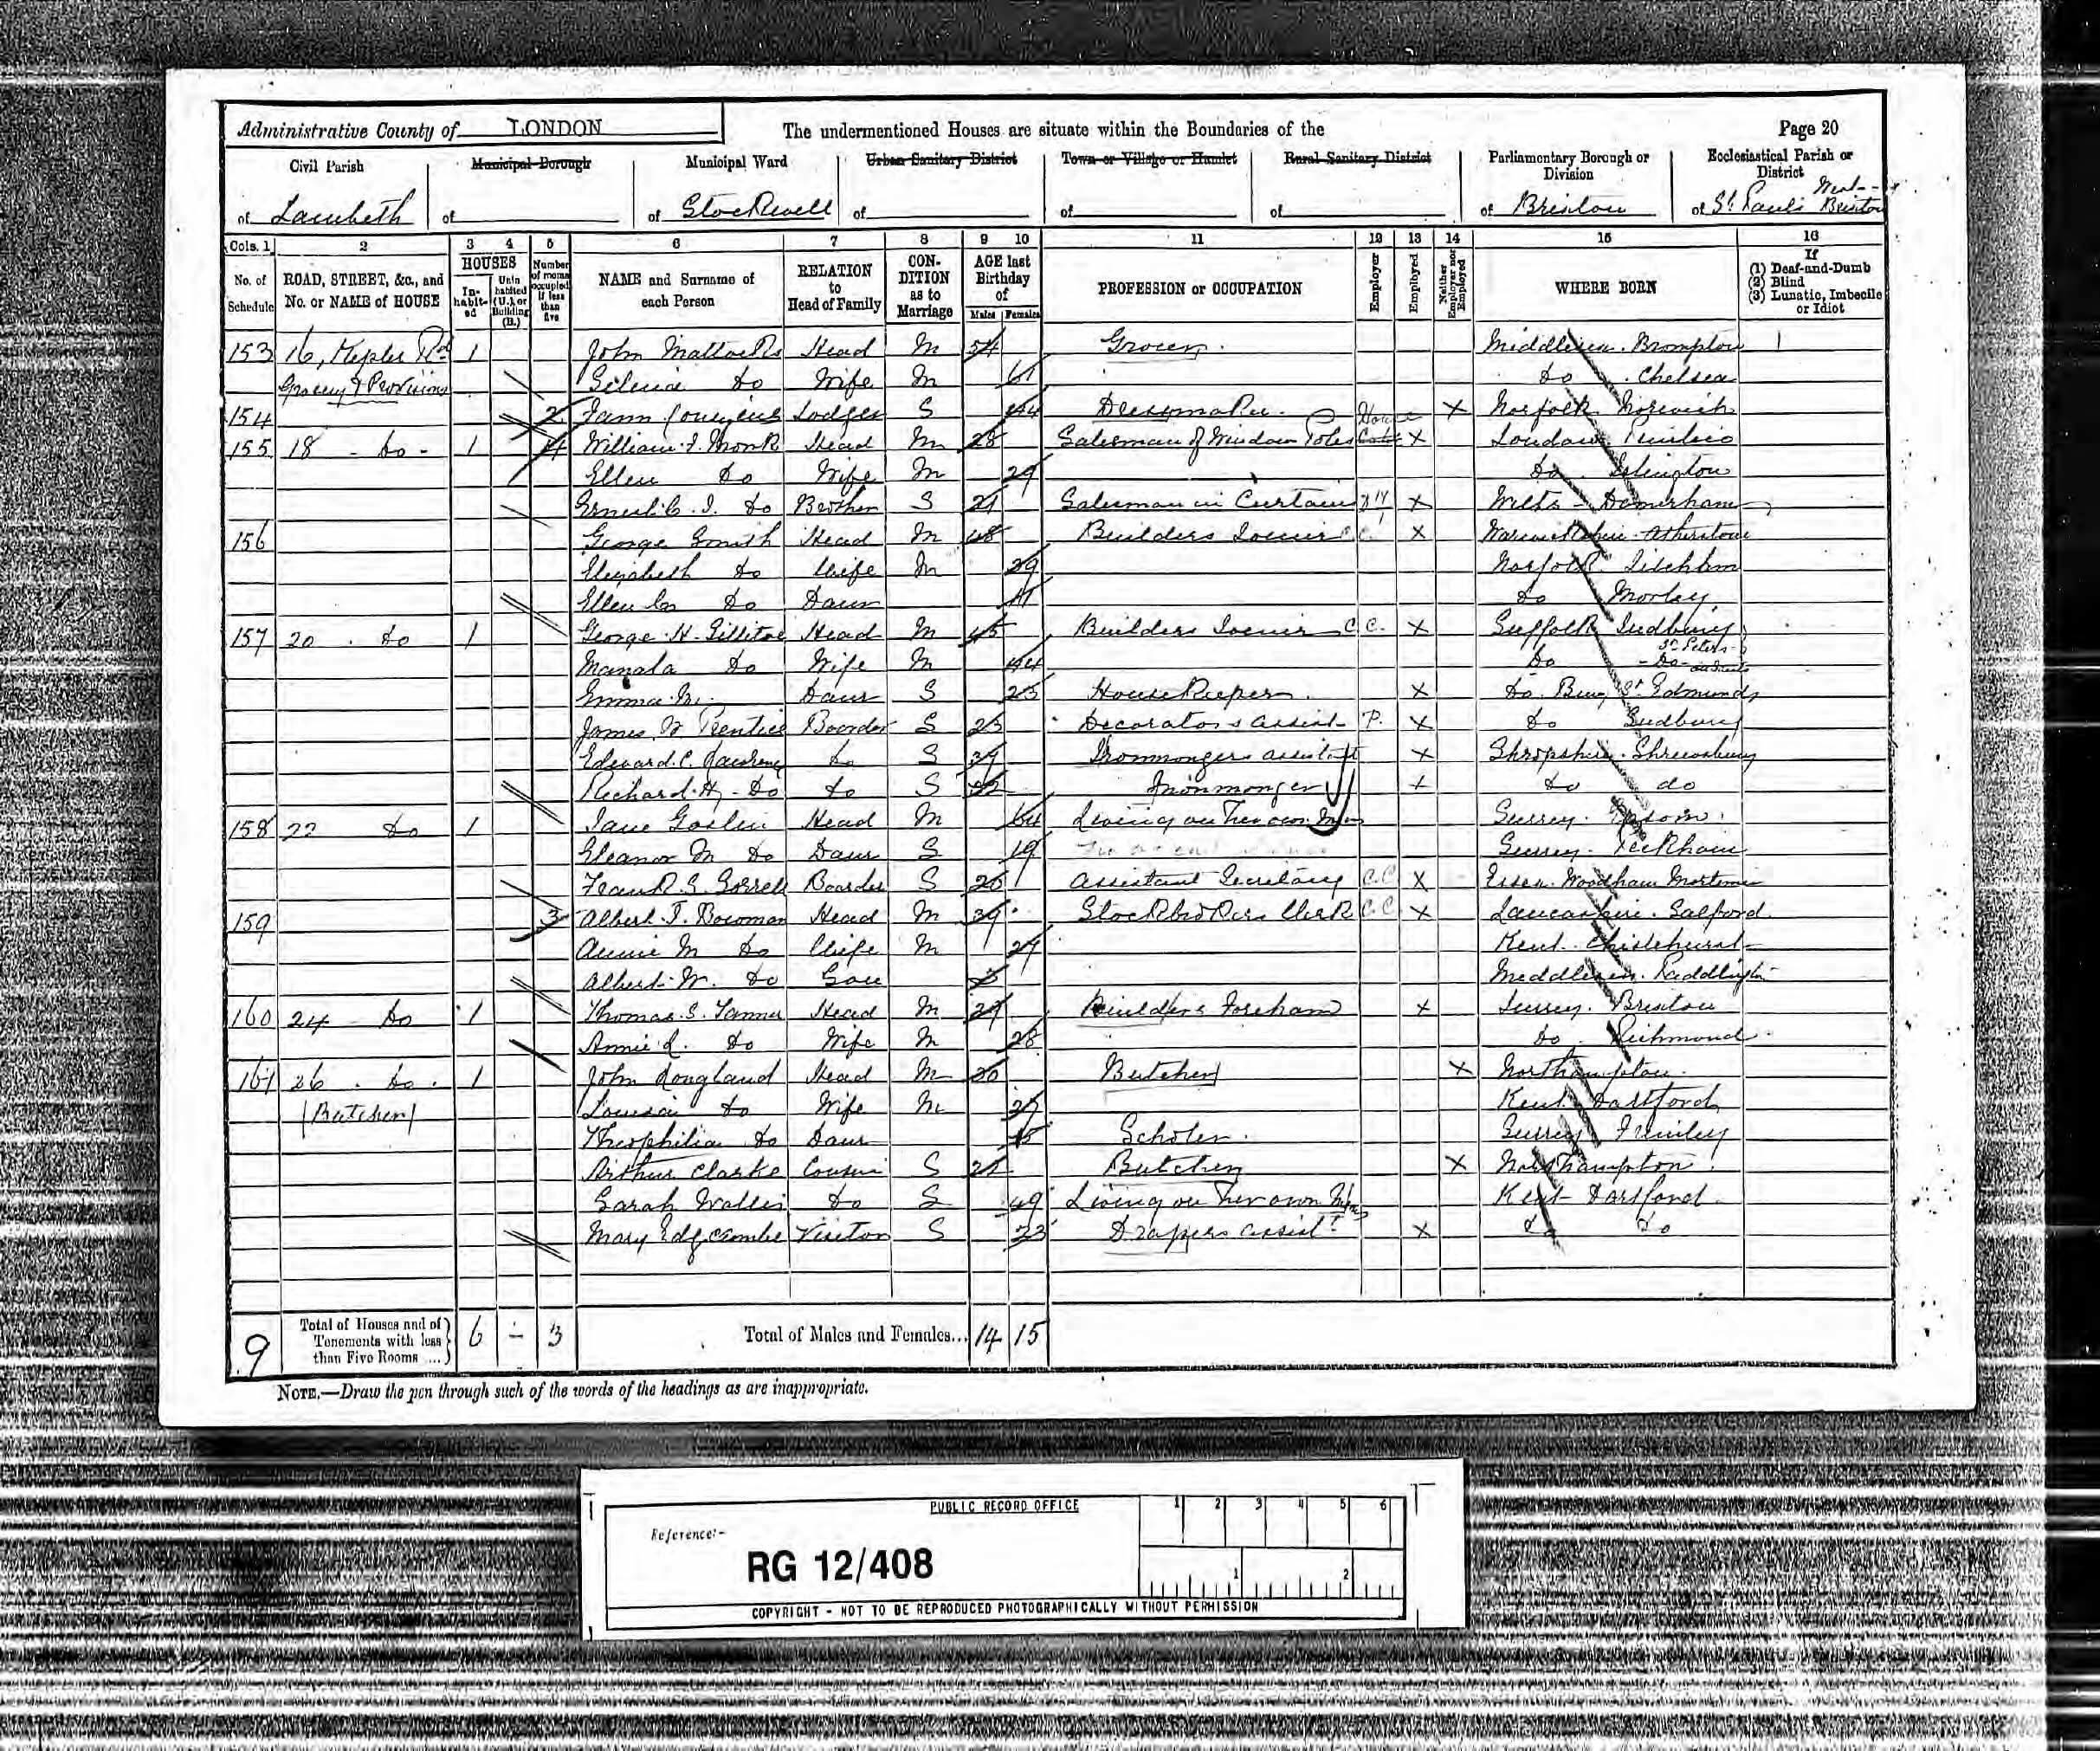 Administrative County of LONDON The undermentioned Houses are situate within the Boundaries of the Page 20
Civil Parish Municipal Borough Municipal Ward Urban Sanitary District Town or Village or Hamlet Rural Sanitary District Parliamentary Borough or Division Ecclesiastical Parish or District
of Lambeth of of Stockwell of of of of Brixton of St Pauls West Brixton
Cols. 1 2 3 4 5 6 7 8 9 10 11 12 13 14 15 16
No. of Schedule ROAD, STREET, &c., and No. or NAME of HOUSE HOUSES In-habit-ed Unin habited (U.), or Building (B.) Number of rooms occupied if less than five NAME and Surname of each Person RELATION to Head of Family CON-DITION as to Marriage AGE last Birthday of Males Females PROFESSION or OCCUPATION Employer Employed Neither Employer nor Employed WHERE BORN If (1) Deaf-and-Dumb (2) Blind (3) Lunatic, Imbecile or Idiot
153 16, Kepler Rd 1 John Mattocks Head M 54 Grocer. Middlesex. Brompton
Grocery & Provisions do Wife M 61 do . Chelsea
154 2 Lodger S 44 Dressmaker. X Norfolk Norwich
155 18 - do - 1 4 William Monk Head M 28 Salesman of Window Poles X London Pimlico
Ellen do Wife M 29 do Islington
Ernest C. J. do Brother S 21 Salesman in Curtain X Wilts - Damerham
156 George Smith Head M 48 Builders Joiner X Warwickshire Atherstone
Elizabeth do Wife M 39 Norfolk Litcham
Ellen do Daur 11 do Morley
157 20 . do 1 George H. Head M 45 Builders Joiner C C. X Suffolk Sudbury
do Wife M 44 do - Do - St Peters
Emma M. Daur S 23 Housekeeper. X Do. Bury St Edmunds
James W Prentice Boarder S 23 Decorators Assist P. X do Sudbury
Edward. C. do S 39 Ironmongers assistant X Shropshire. Shrewsbury
Richard. H. - Do do S Ironmonger X do do
158 22 do 1 Jane Head M 64 Living on Her own Mns Surrey. Epsom.
Eleanor M do Daur S 19 Surrey. Peckham
Frank S. Sorrell Boarder S 26 Assistant Secretary C.C X Essex. Woodham Mortimer
159 3 Albert. T. Bowman Head M 39 Stockbrokers Clerk C.C X Lancashire. Salford
Annie M do Wife M 29 Kent. Chislehurst
Albert. W. do Son Middlesex. Paddington
160 24 do 1 Thomas. S. Tanner Head M 29 Builders Foreman X Surrey. Brixton
Annie L. do Wife M 28 do. Richmond.
161 26 . do . 1 John Longland Head M 30 Butcher X Northampton.
(Butcher) Louisa do Wife M Kent. Dartford
Theophilia do Daur Scholar. Surrey Frimley
Arthur Clarke Cousin S 21 Butcher X Northampton.
Sarah Wallis do S 49 Living on Her own Mns Kent Dartford
Mary Edgcombe Visitor S 23 Drapers assist. X do do
9 Total of Houses and of Tenements with less than Five Rooms ... 6 - 3 Total of Males and Females... 14 15
NOTE.—Draw the pen through such of the words of the headings as are inappropriate.
PUBLIC RECORD OFFICE 1 2 3 4 5 6
Reference:-
RG 12/408
1 2
COPYRIGHT - NOT TO BE REPRODUCED PHOTOGRAPHICALLY WITHOUT PERMISSION